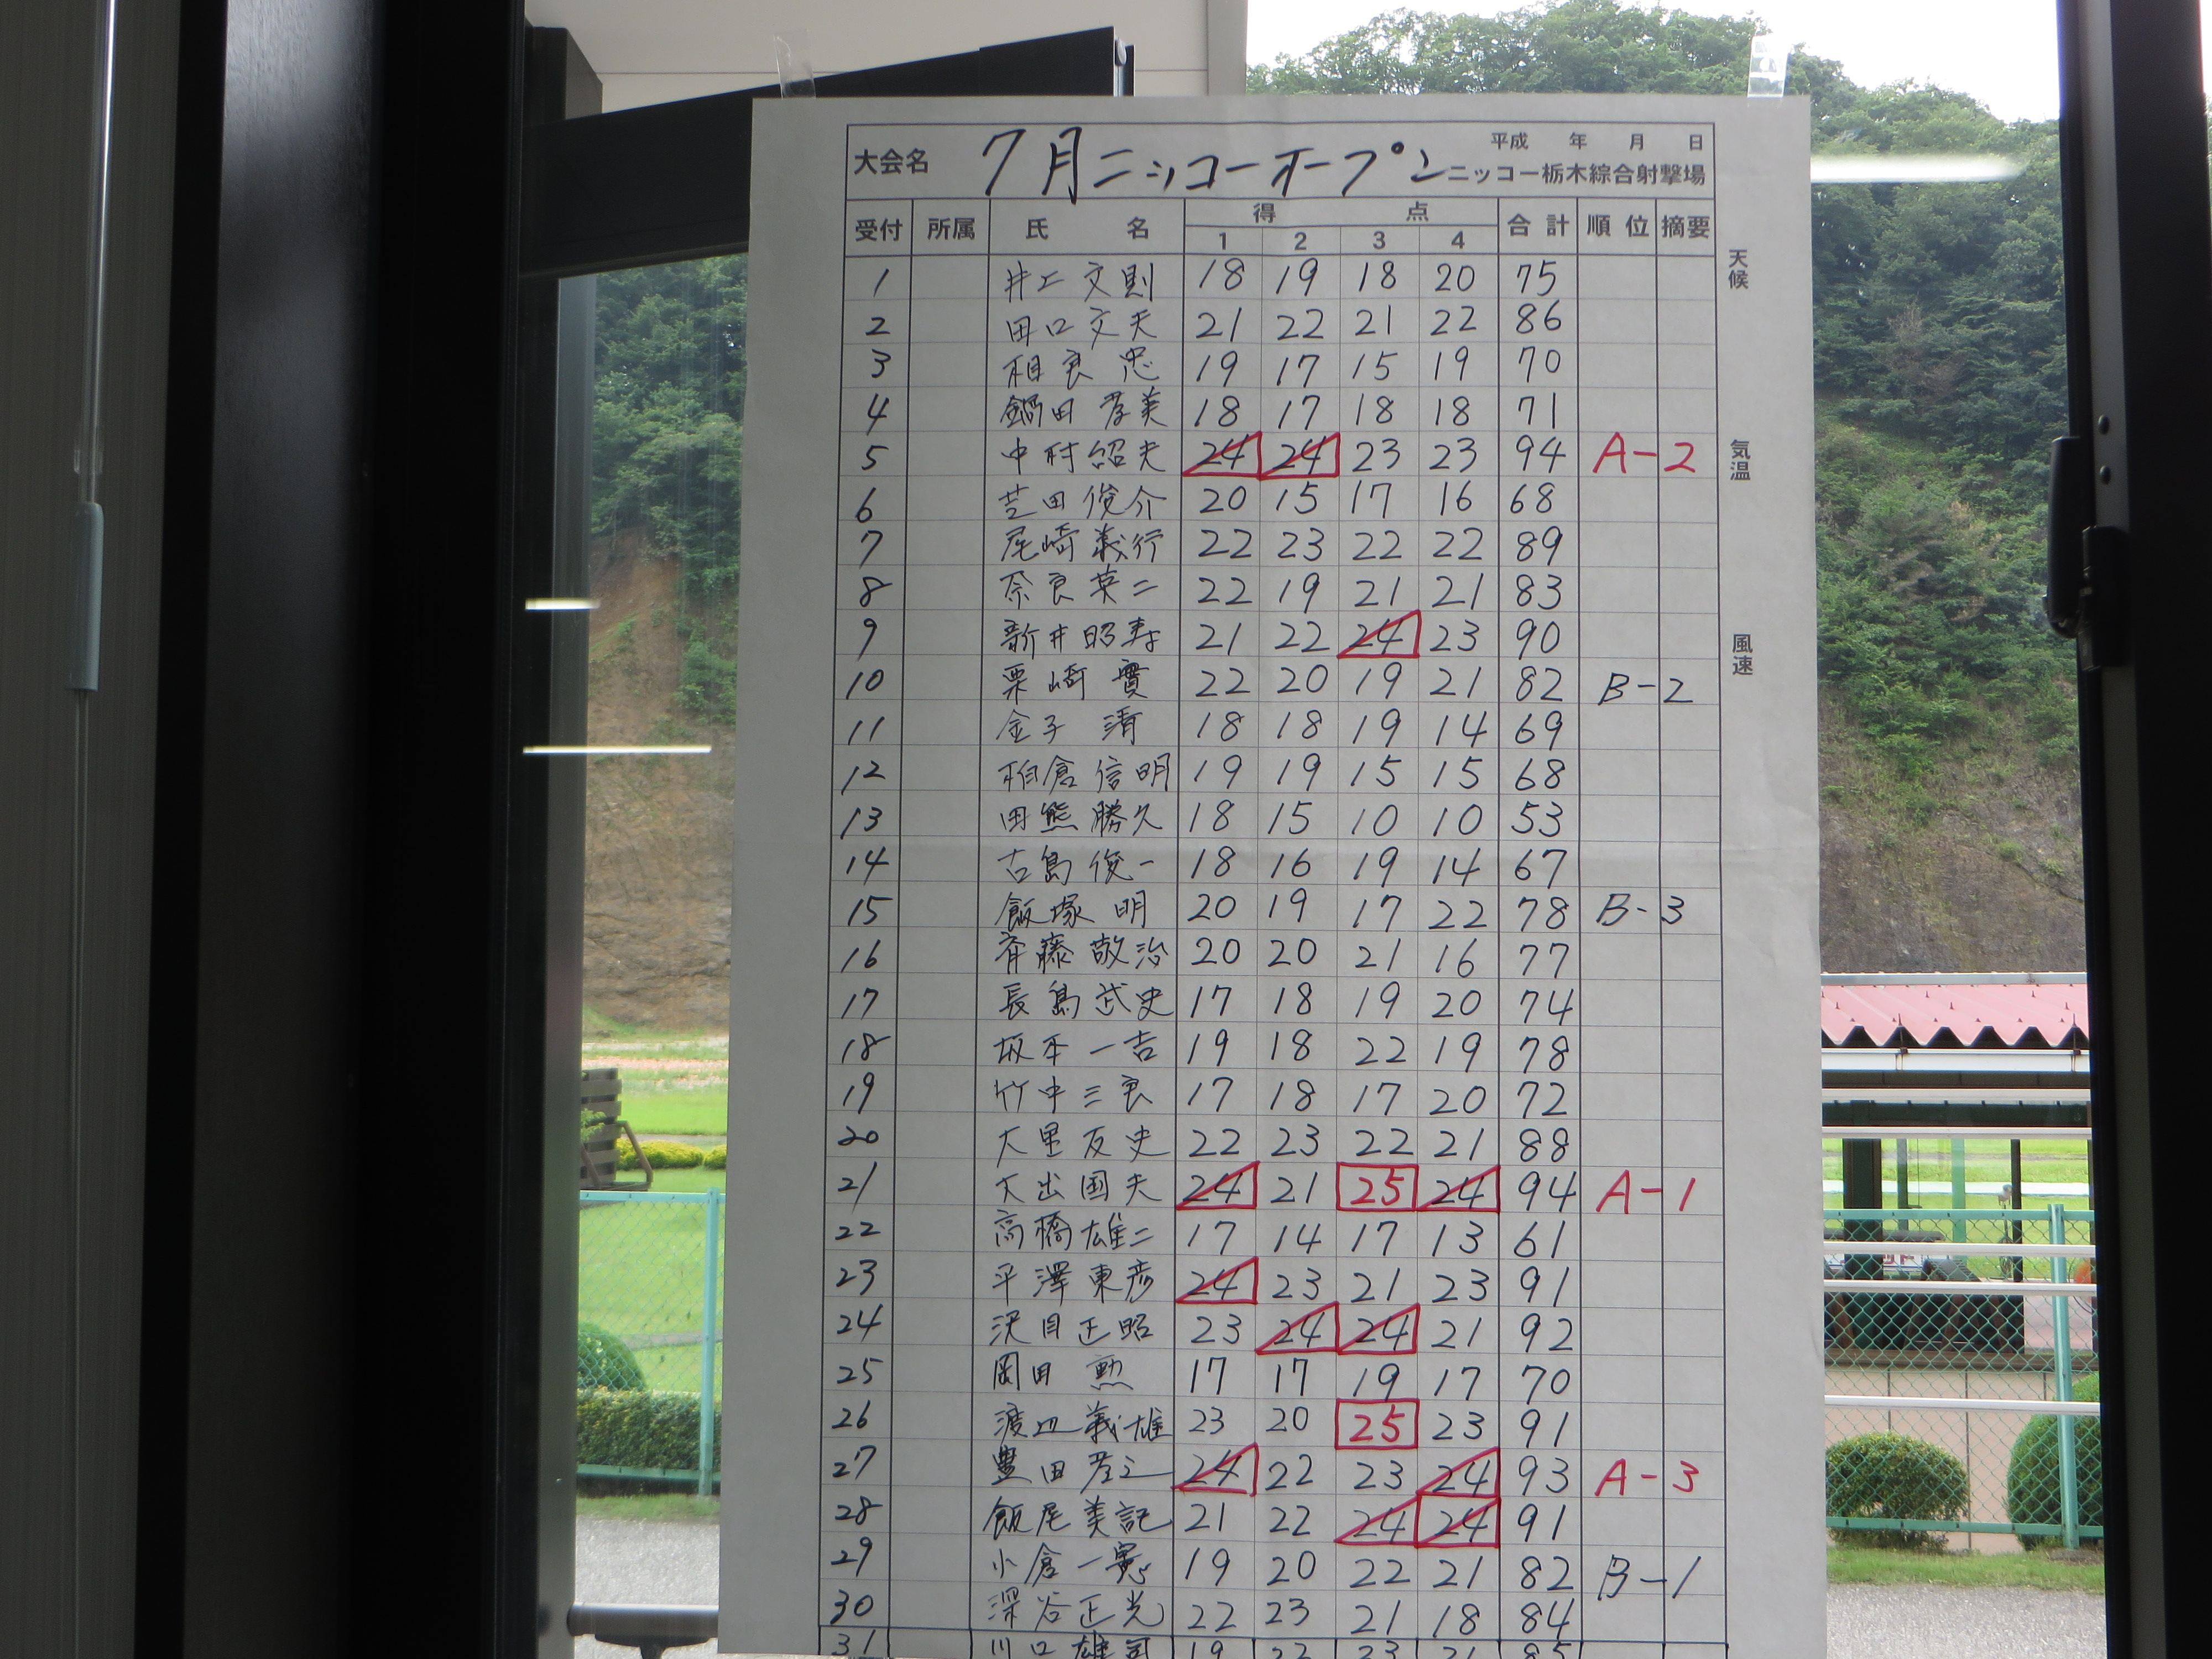 平成 年 月 日
大会名 7月ニッコーオープン ニッコー栃木綜合射撃場
受付 所属 氏 名 得 点 合計 順位 摘要
1 2 3 4
天候
気温
風速
1 井上文則 18 19 18 20 75
2 田口文夫 21 22 21 22 86
3 相良忠 19 17 15 19 70
4 鍋田孝美 18 17 18 18 71
5 中村紹夫 24 24 23 23 94 A-2
6 芝田俊介 20 15 17 16 68
7 尾崎義行 22 23 22 22 89
8 奈良英二 22 19 21 21 83
9 新井昭寿 21 22 24 23 90
10 栗崎實 22 20 19 21 82 B-2
11 金子清 18 18 19 14 69
12 柏倉信明 19 19 15 15 68
13 田熊勝久 18 15 10 10 53
14 古島俊一 18 16 19 14 67
15 飯塚明 20 19 17 22 78 B-3
16 斉藤敬治 20 20 21 16 77
17 長島武史 17 18 19 20 74
18 坂本一吉 19 18 22 19 78
19 竹中三良 17 18 17 20 72
20 大里友史 22 23 22 21 88
21 大出国夫 24 21 25 24 94 A-1
22 高橋雄二 17 14 17 13 61
23 平澤東彦 24 23 21 23 91
24 沢目正昭 23 24 24 21 92
25 岡田勲 17 17 19 17 70
26 渡辺義雄 23 20 25 23 91
27 豊田孝之 24 22 23 24 93 A-3
28 飯尾美記 21 22 24 24 91
29 小倉一憲 19 20 22 21 82 B-1
30 深谷正光 22 23 21 18 84
31 川口雄司 19 22 23 21 85